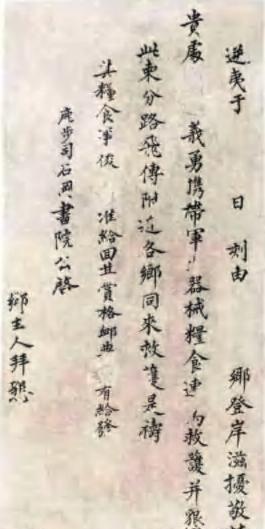 逆夷于　日　刻由　鄉登岸滋擾敬
貴處　義勇攜帶軍　器械糧食速　救護并
此柬分路飛傳附近各鄉同來救護是禱
其糧食事後　准給回並賞格卹典　有給發
鹿步司石岡書院公啓
鄉主人拜懇